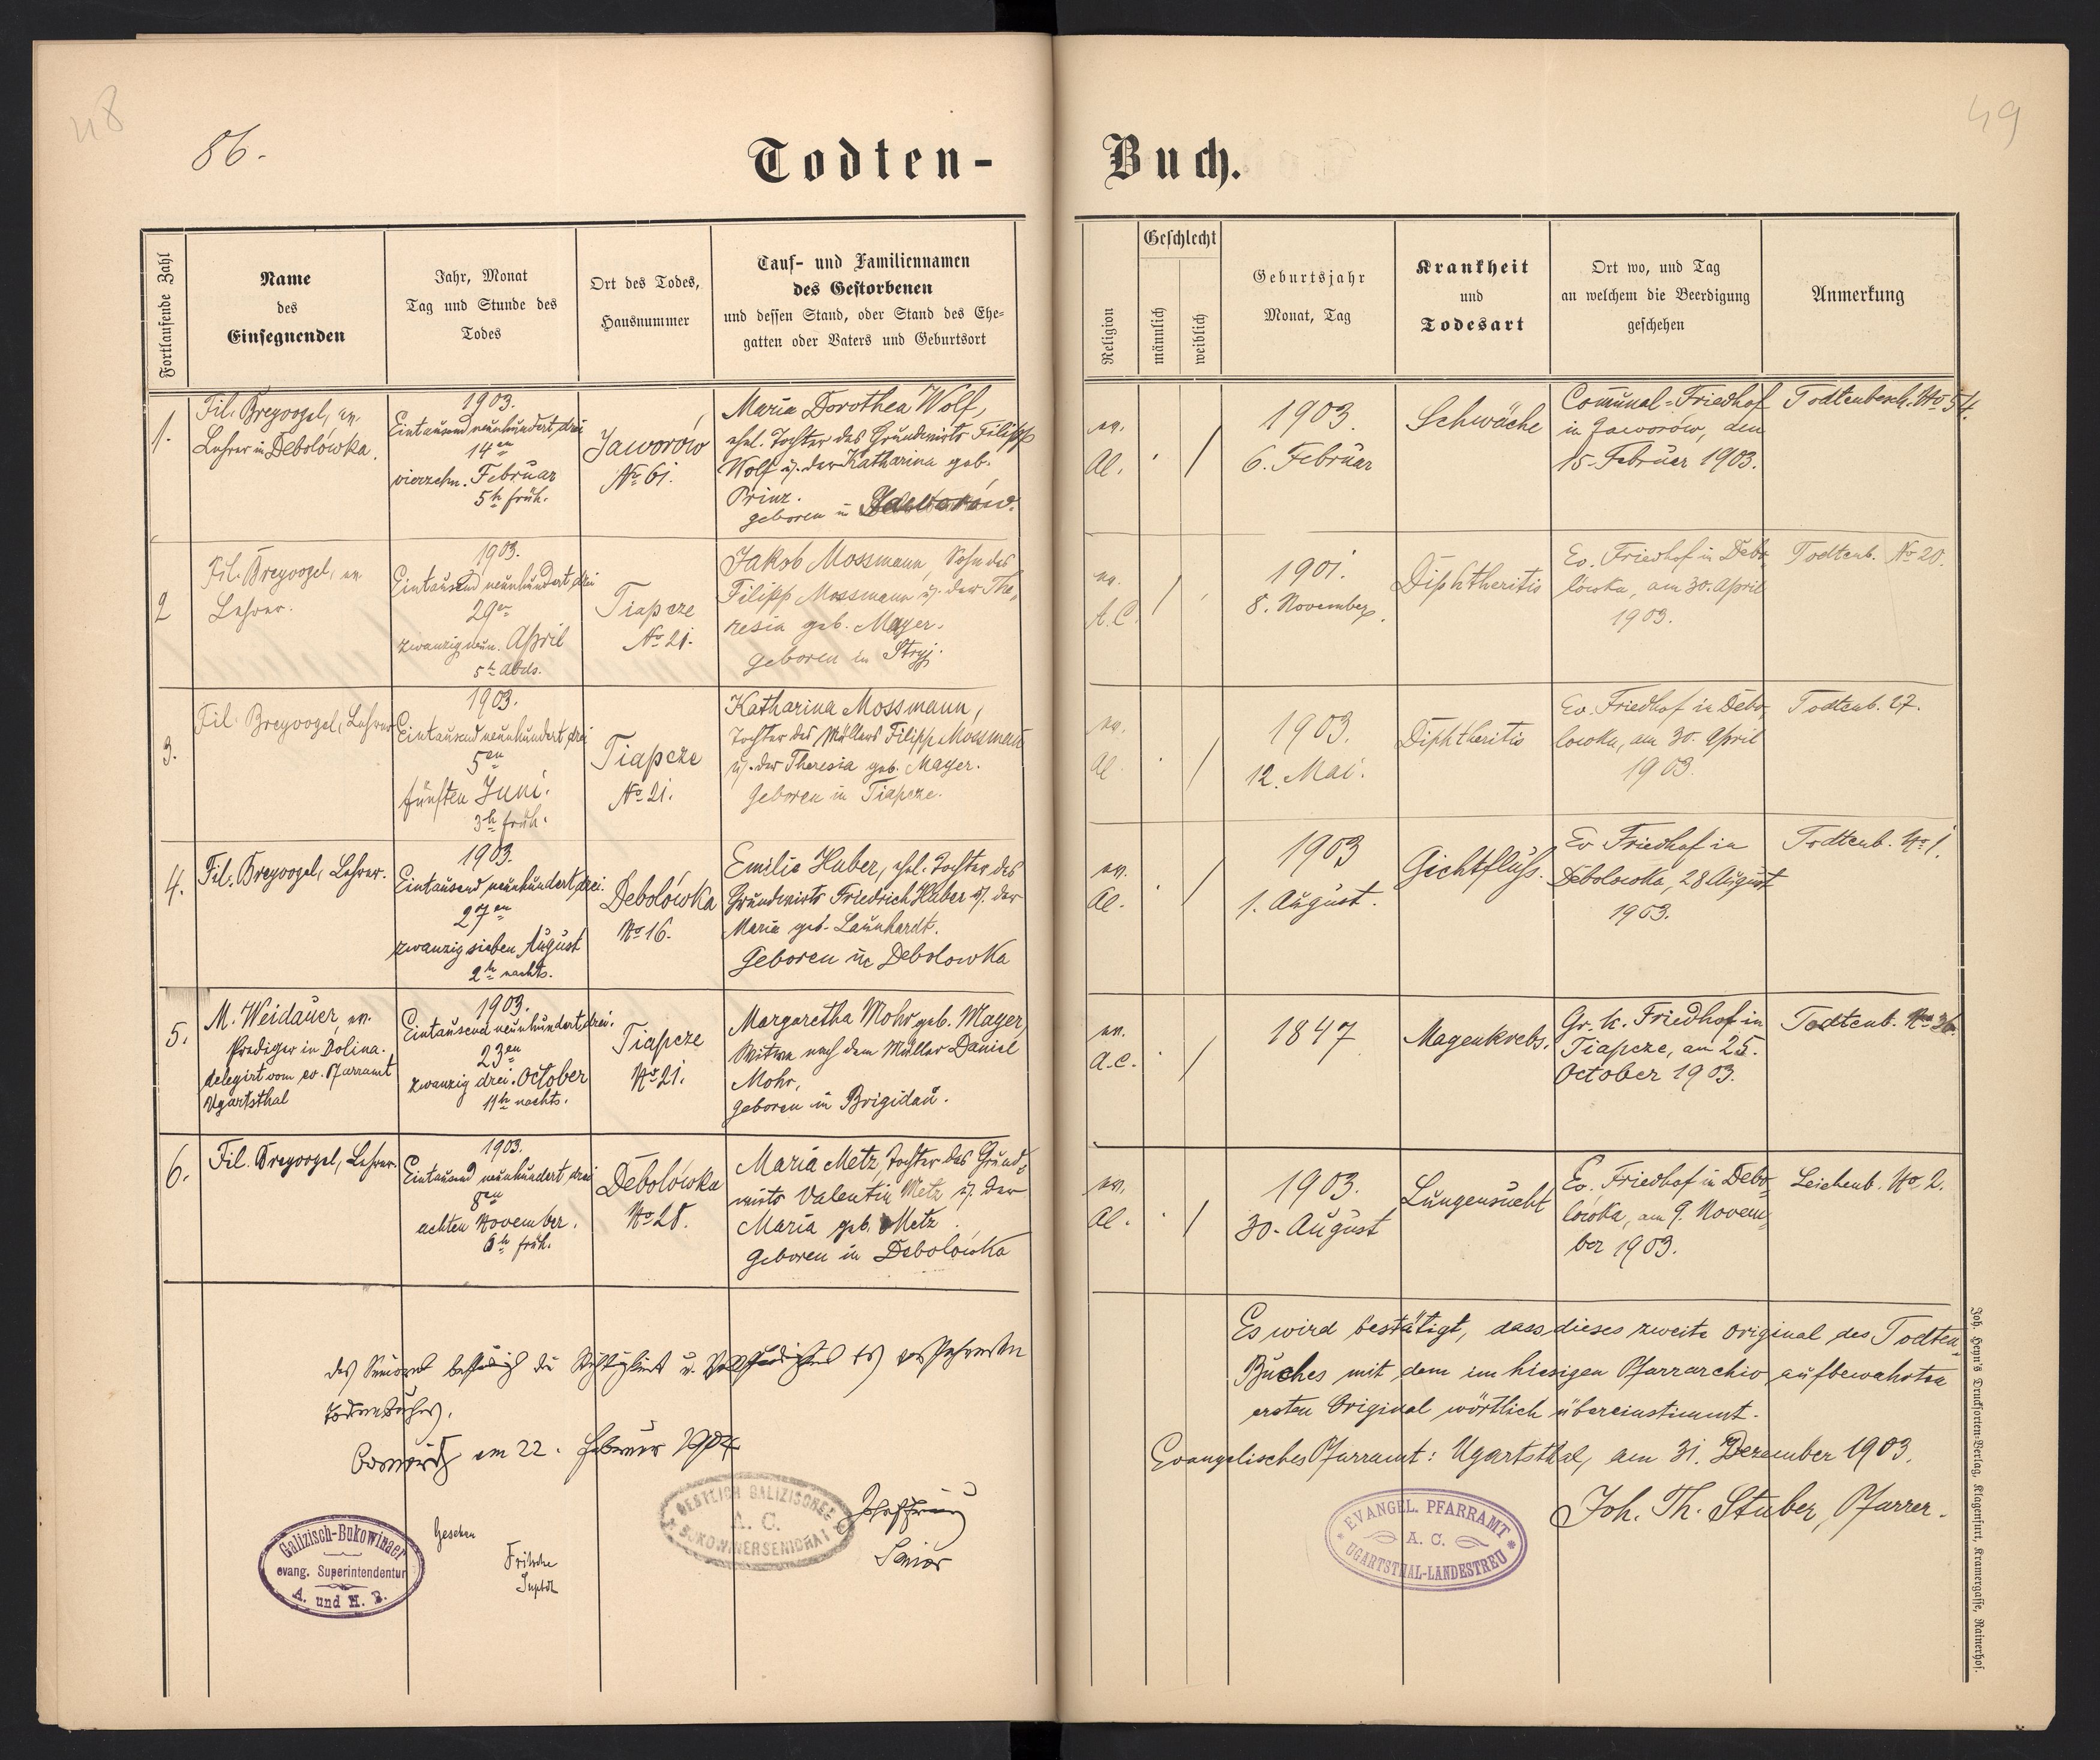 48
86.
Todten-
Fortlaufende Zahl
Name
des
Einsegnenden
Jahr, Monat
Tag und Stunde des
Todes
Ort des Todes,
Hausnummer
Tauf- und Familiennamen
des Gestorbenen
und dessen Stand, oder Stand des Ehe-
gatten oder Vaters und Geburtsort
1.
Fil. Breyvogel, ev.
Lehrer in Debolówka.
1903.
Eintausend neunhundert drei
14en
vierzehn. Februar
5h früh.
Jaworów
No 61.
Maria Dorothea Wolf,
ehel. Tochter des Grundwirts Filipp
Wolf u. der Katharina geb.
Prinz.
geboren in
2
Fil. Breyvogel, ev.
Lehrer.
1903.
Eintausend neunhundert drei
29en
zwanzig neun. April
5h abds.
Tiapcze
No 21.
Jakob Mossmann, Sohn des
Filipp Mossmann u. der The-
resia geb. Mayer.
geboren in Stryj.
3.
Fil. Breyvogel, Lehrer
1903.
Eintausend neunhundert drei
5en
fünften Juni.
3h früh.
Tiapcze
No 21.
Katharina Mossmann,
Tochter des Müllers Filipp Mossmann
u. der Theresia geb. Mayer.
Geboren in Tiapcze.
4.
Fil. Breyvogel, Lehrer.
1903.
Eintausend neunhundert drei.
27en
zwanzig sieben August
2h nachts.
Debolówka
No 16.
Emilie Huber, ehel. Tochter des
Grundwirts Friedrich Huber u. der
Maria geb. Launhardt.
Geboren in Debolowka
5.
M. Weidauer, ev.
Prediger in Dolina.
delegirt vom ev. Pfarramt
Ugartsthal
1903.
Eintausend neunhundert drei.
23en
zwanzig drei. October
11h nachts.
Tiapcze
No 21.
Margaretha Mohr, geb. Mayer,
Witwe nach dem Müller Daniel
Mohr.
geboren in Brigidau.
6.
Fil. Breyvogel, Lehrer.
1903.
Eintausend neunhundert drei
8en
achten November.
6h früh.
Debolówka
No 28.
Maria Metz, Tochter des Grund-
wirts Valentin Metz u. der
Maria geb. Metz.
Geboren in Debolówka
am 22. Februar 1904
OESTLICH GALIZISCHES
A. C.
BUKOWINERSENIORAT
Senior
Galizisch-Bukowinaer
evang. Superintendentur
A. und H. B.
Gesehen
Fritsche
Suptdt
49
Buch.
Religion
Geschlecht
männlich
weiblich
Geburtsjahr
Monat, Tag
Krankheit
und
Todesart
Ort wo, und Tag
an welchem die Beerdigung
geschehen
Anmerkung
ev.
AC.
1903.
6. Februar
Schwäche
Comunal-Friedhof
in Jaworów, den
15. Februar 1903.
Todtenbesch. No 54.
ev.
A.C.
1901.
8. November.
Diphtheritis
Ev. Friedhof in Debo-
lówka, am 30. April
1903.
Todtenb. No 20.
ev.
AC.
1903.
12. Mai.
Diphtheritis
Ev. Friedhof in Debo-
lowka, am 30. April
1903.
Todtenb. 27.
ev.
AC.
1903
1. August.
Gichtfluss.
Ev Friedhof in
Debolowka, 28 August
1903.
Todtenb. No 1.
ev.
A.C.
1847
Magenkrebs.
Gr. k. Friedhof in
Tiapcze, am 25.
October 1903.
Todtenb. No 36.
ev.
AC.
1903.
30. August
Lungensucht
Ev. Friedhof in Debo-
lówka, am 9. Novem-
ber 1903.
Leichenb. No 2.
Es wird bestätigt, dass dieses zweite Original des Todten-
Buches mit dem im hiesigen Pfarrarchiv aufbewahrten
ersten Original wörtlich übereinstimmt.
Evangelisches Pfarramt: Ugartsthal, am 31. Dezember 1903.
Joh. Th. Stuber, Pfarrer.
EVANGEL. PFARRAMT
A. C.
UGARTSTHAL-LANDESTREU
Joh. Heyn's Drucksorten-Verlag, Klagenfurt, Kramergasse, Rainerhof.